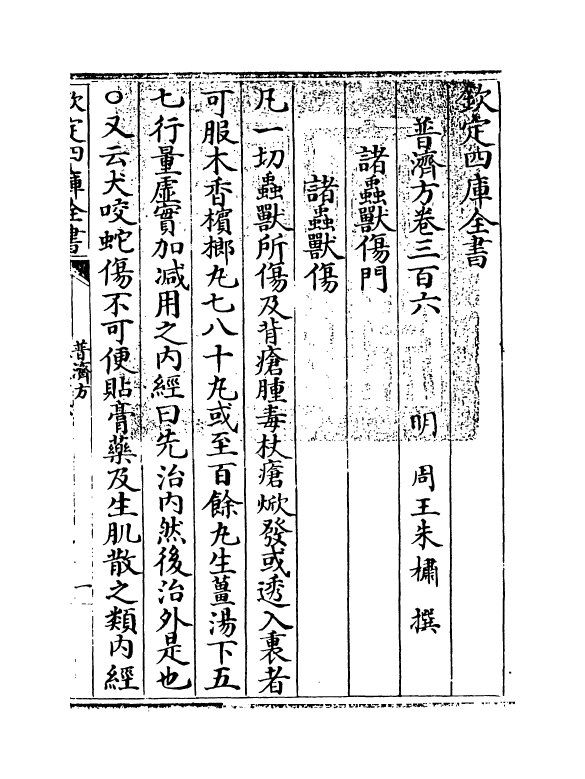 欽定四庫全書
普濟方卷三百六　明　周王朱橚　撰
諸蟲獸傷門
諸蟲獸傷
凡一切蟲獸所傷及背瘡腫毒杖瘡焮發或透入裏者
可服木香檳榔丸七八十丸或至百餘丸生薑湯下五
七行量虛實加減用之内經曰先治内然後治外是也
○又云犬咬蛇傷不可便貼膏藥及生肌散之類内經
欽定四庫全書
普濟方
一